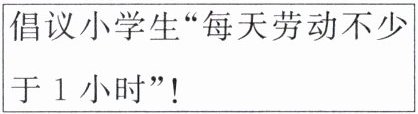 倡议小学生“每天劳动不少
于 1 小时”!